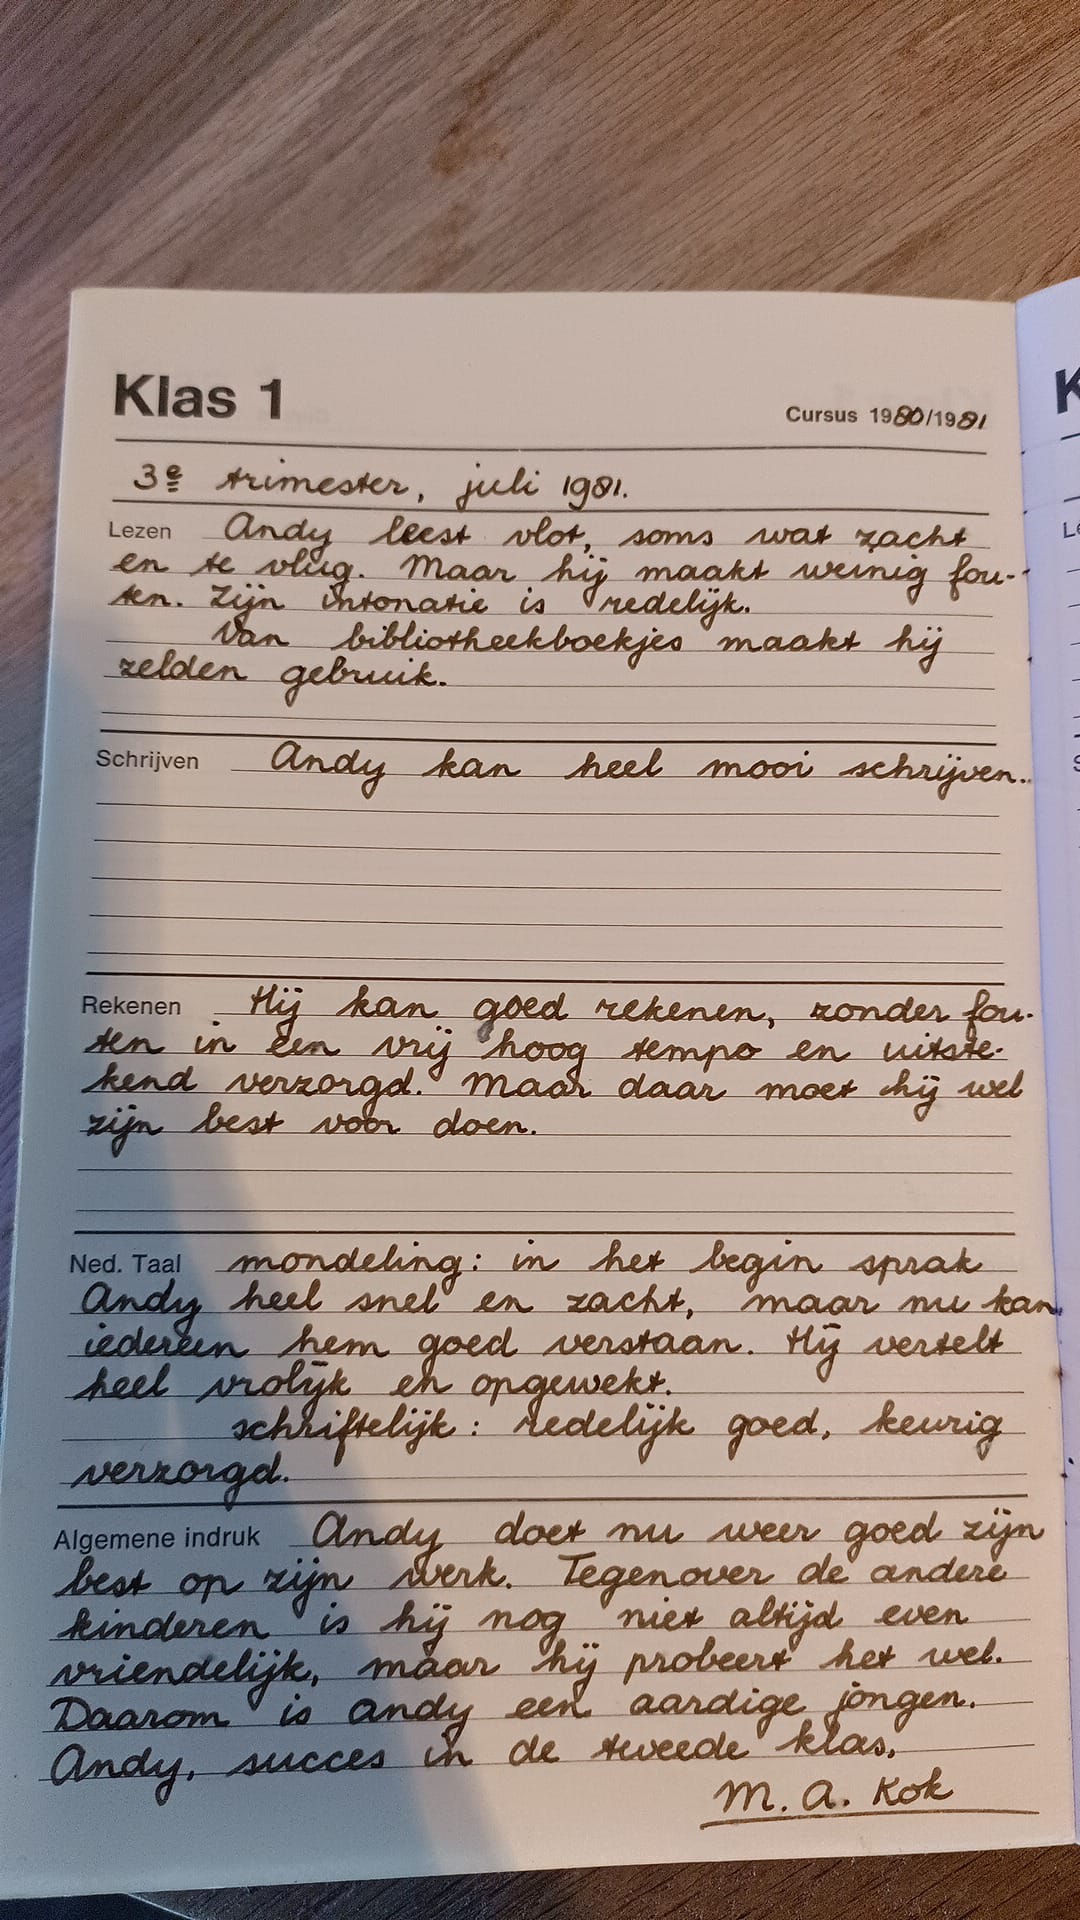 Klas 1
Cursus 1980/1981
3e trimester, juli 1981.
Lezen Andy leest vlot, soms wat zacht
en te vlug. Maar hij maakt weinig fou-
ten. Zijn intonatie is redelijk.
Van bibliotheekboekjes maakt hij
zelden gebruik.
Schrijven Andy kan heel mooi schrijven.
Rekenen Hij kan goed rekenen, zonder fou-
ten in een vrij hoog tempo en uitste-
kend verzorgd. Maar daar moet hij wel
zijn best voor doen.
Ned. Taal mondeling: in het begin sprak
Andy heel snel en zacht, maar nu kan
iedereen hem goed verstaan. Hij vertelt
heel vrolijk en opgewekt.
schriftelijk: redelijk goed, keurig
verzorgd.
Algemene indruk Andy doet nu weer goed zijn
best op zijn werk. Tegenover de andere
kinderen is hij nog niet altijd even
vriendelijk, maar hij probeert het wel.
Daarom is andy een aardige jongen.
Andy, succes in de tweede klas.
M. A. Kok